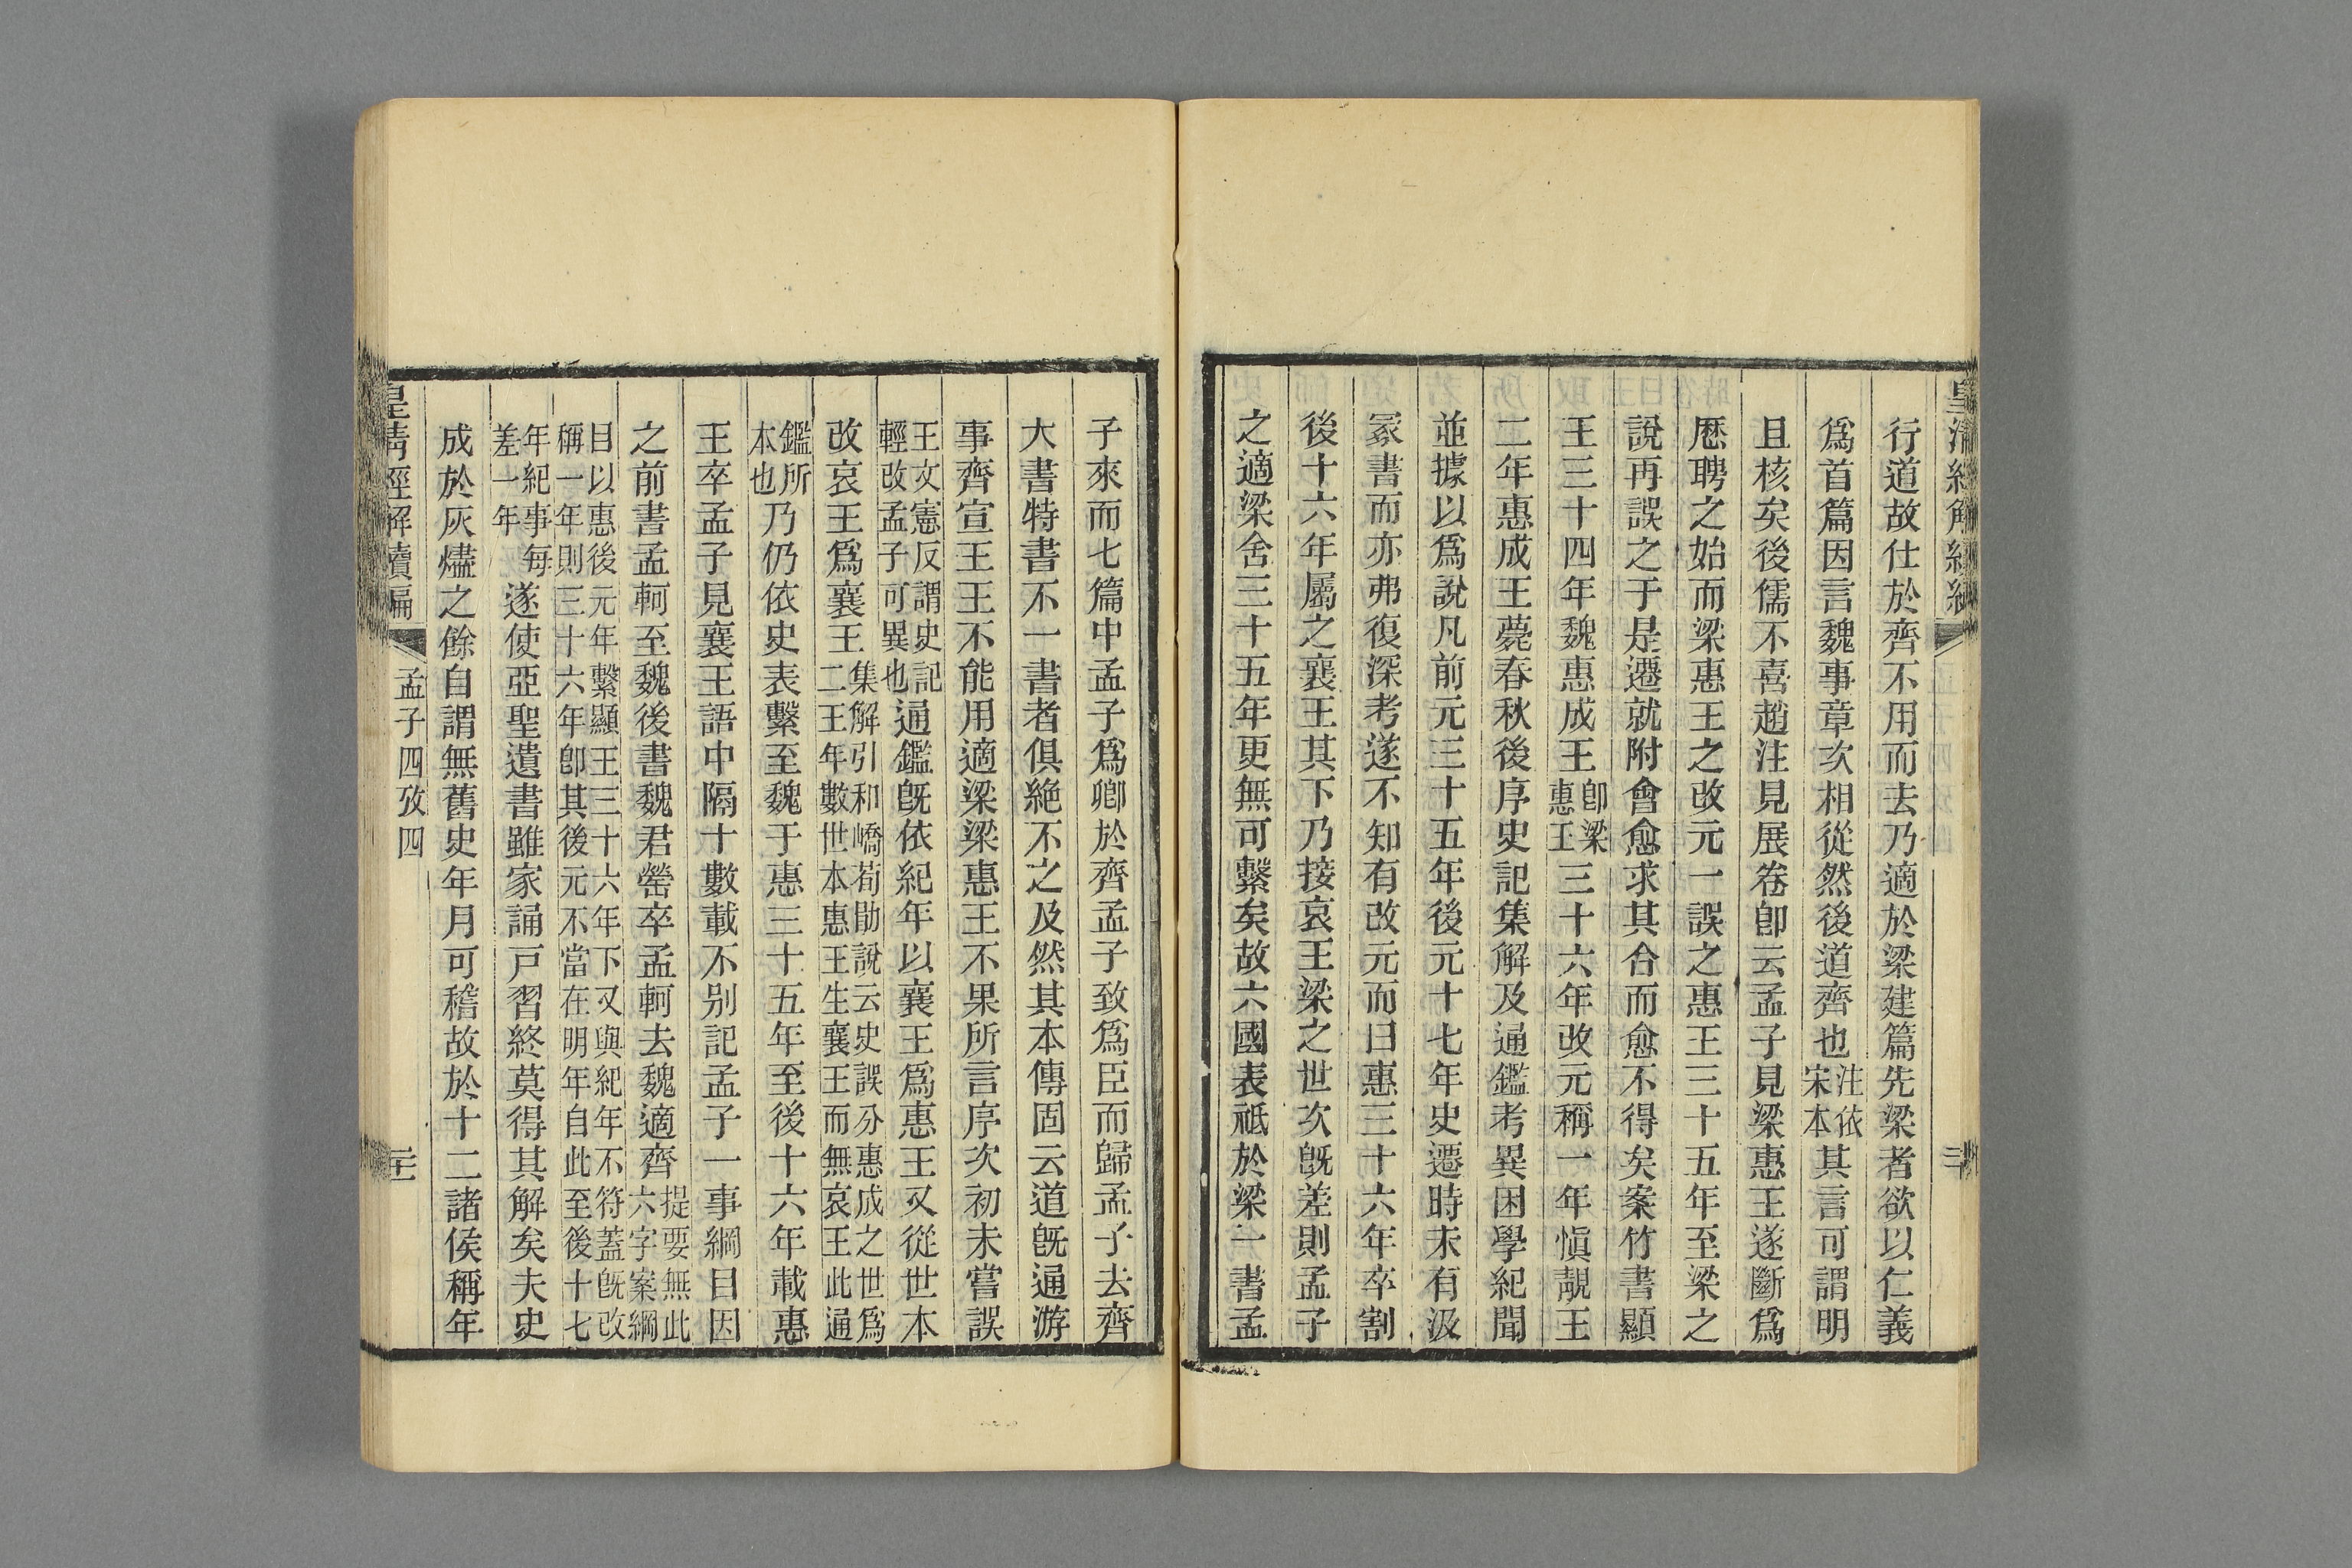 行道故仕於齊不用而去乃適於梁建篇先梁者欲以仁義
爲首篇因言魏事章次相從然後道齊也注依宋本其言可謂明
且核矣後儒不喜趙注見展卷卽云孟子見梁惠王遂斷爲
厯聘之始而梁惠王之改元一誤之惠王三十五年至梁之
說再誤之于是遷就附會愈求其合而愈不得矣案竹書顯
王三十四年魏惠成王卽梁惠王三十六年改元稱一年愼靚王
二年惠成王薨春秋後序史記集解及通鑑考異困學紀聞
並據以爲說凡前元三十五年後元十七年史遷時未有汲
冢書而亦弗復深考遂不知有改元而曰惠三十六年卒割
後十六年屬之襄王其下乃接哀王梁之世次旣差則孟子
之適梁舍三十五年更無可繫矣故六國表祗於梁一書孟
子來而七篇中孟子爲卿於齊孟子致爲臣而歸孟子去齊
大書特書不一書者俱絶不之及然其本傳固云道旣通游
事齊宣王王不能用適梁梁惠王不果所言序次初未嘗誤
王文憲反謂史記輕改孟子可異也通鑑旣依紀年以襄王爲惠王又從世本
改哀王爲襄王集解引和嶠荀勖說云史誤分惠成之世爲二王年數世本惠王生襄王而無哀王此通
鑑所本也乃仍依史表繫至魏于惠三十五年至後十六年載惠
王卒孟子見襄王語中隔十數載不别記孟子一事綱目因
之前書孟軻至魏後書魏君罃卒孟軻去魏適齊提要無此六字案綱
目以惠後元年繫顯王三十六年下又與紀年不符蓋旣改稱一年則三十六年卽其後元不當在明年自此至後十七
年紀事每差一年遂使亞聖遺書雖家誦戸習終莫得其解矣夫史
成於灰燼之餘自謂無舊史年月可稽故於十二諸侯稱年
皇清經解續編
孟子四攷四